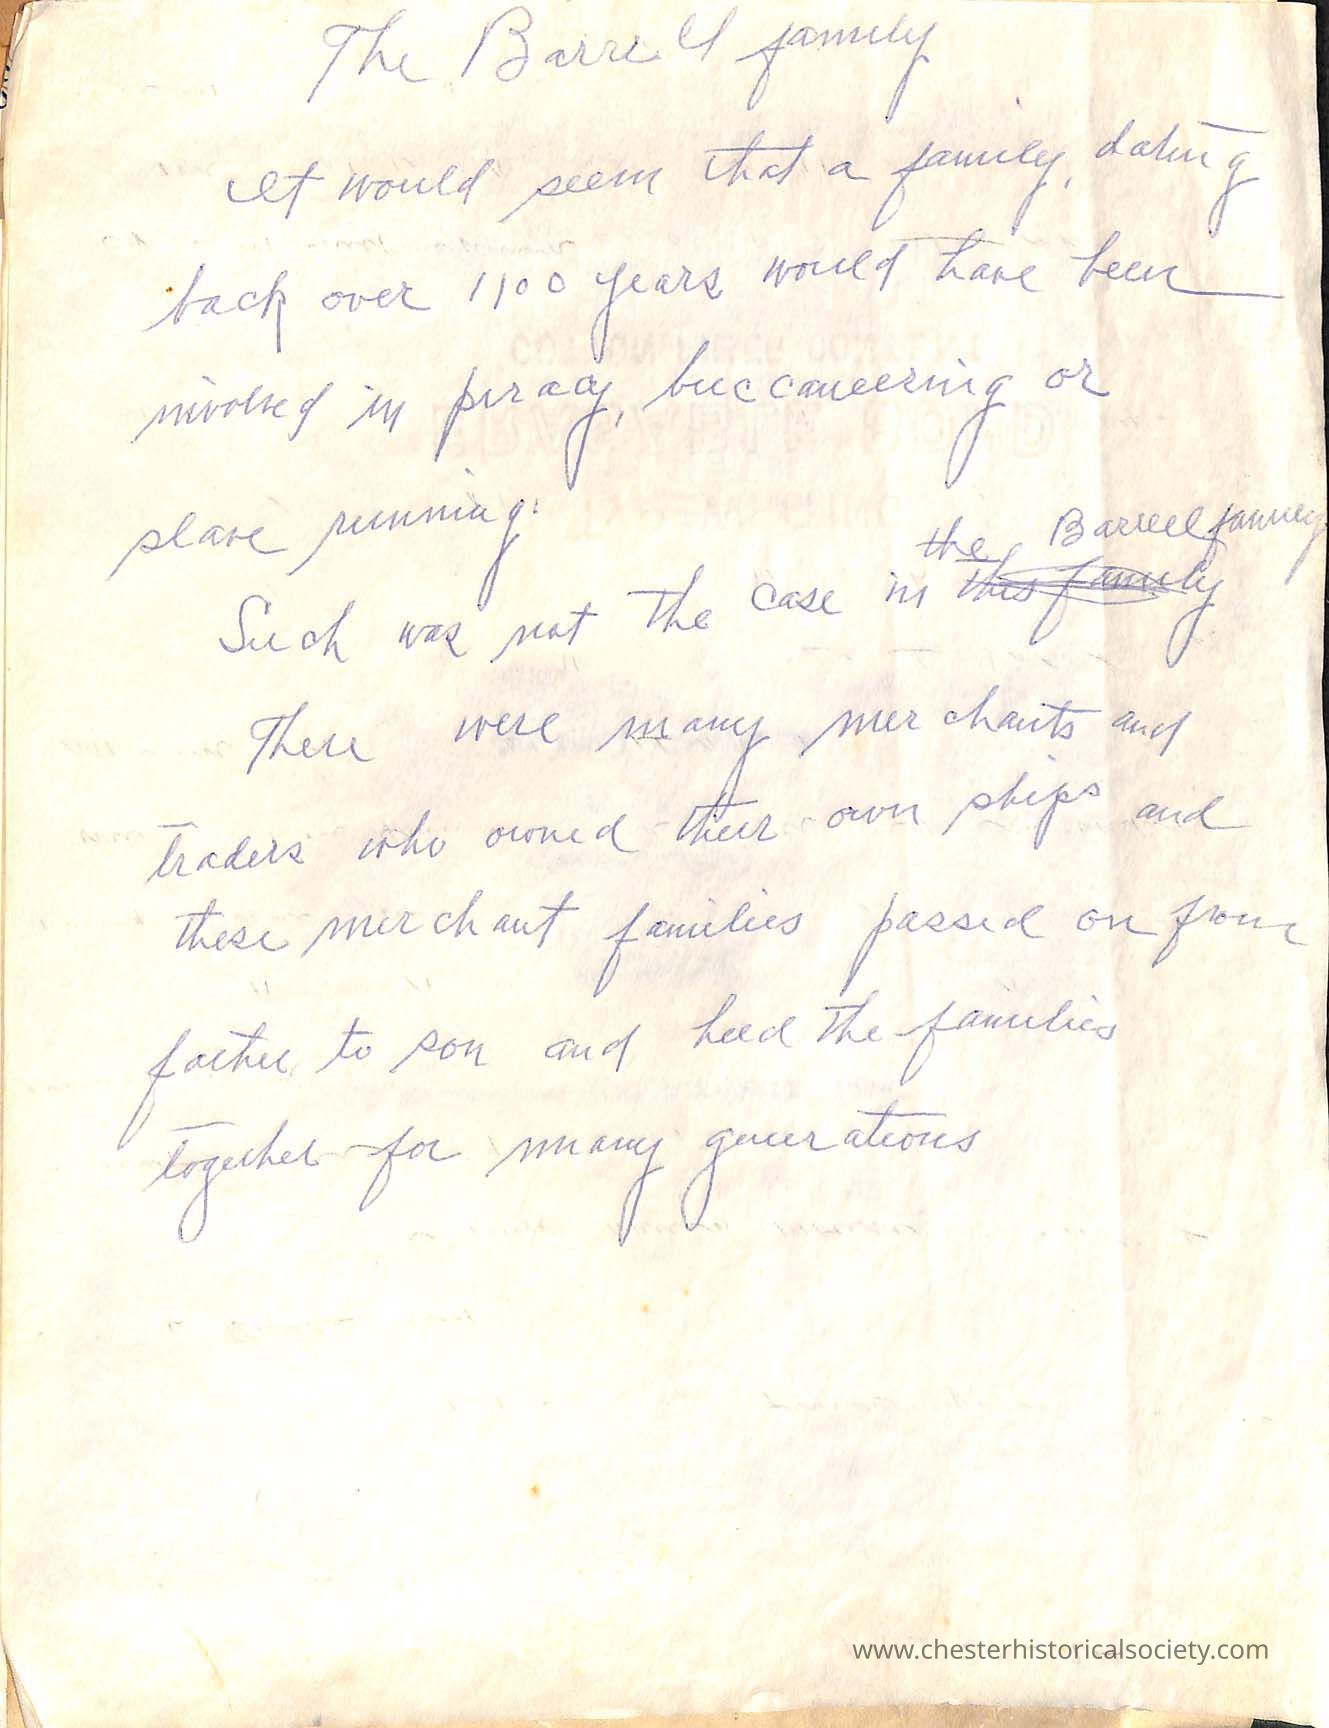 The Barrell family
It would seem that a family, dating
back over 1100 years would have been
involved in piracy, buccaneering or
slave running.
the Barrell family
Such was not the case in this family
There were many merchants and
traders who owned their own ships and
these merchant families passed on from
father to son and held the families
together for many generations
www.chesterhistoricalsociety.com